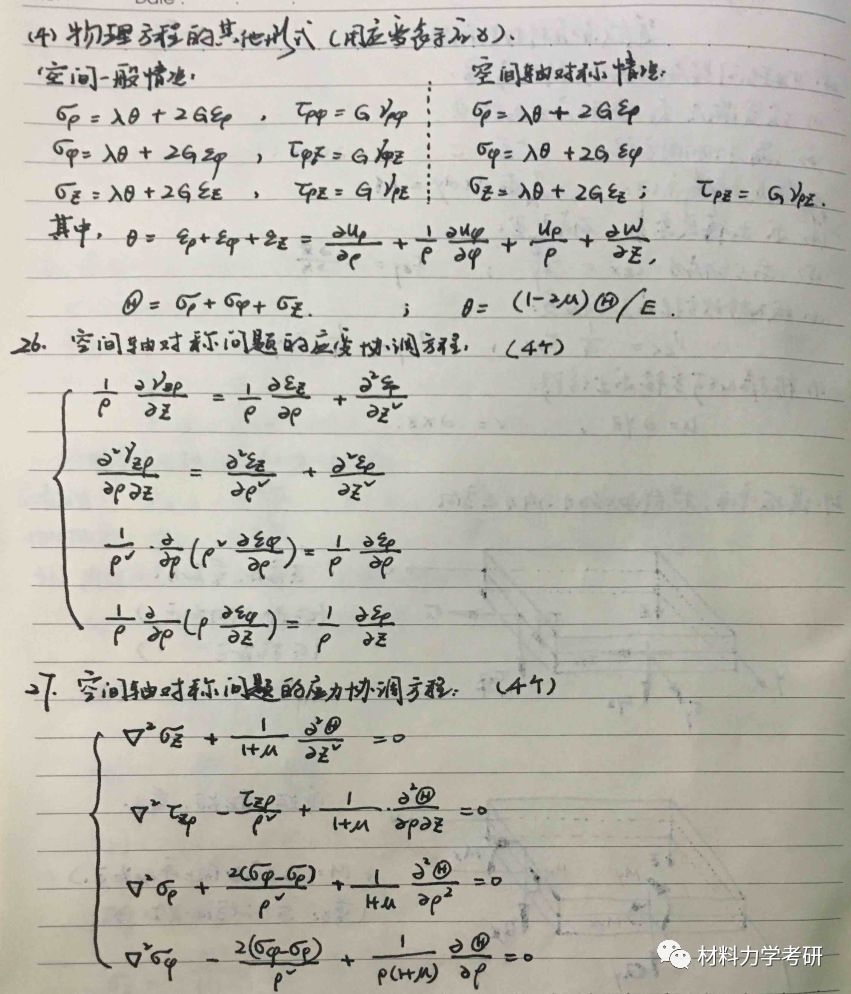 (4) 物理方程的其他形式 (用应变表示应力).
空间一般情况: 空间轴对称情况:
σρ = λθ + 2Gερ , τρφ = Gγρφ σρ = λθ + 2Gερ
σφ = λθ + 2Gεφ , τφz = Gγφz σφ = λθ + 2Gεφ
σz = λθ + 2Gεz , τρz = Gγρz σz = λθ + 2Gεz ; τρz = Gγρz.
其中, θ = ερ + εφ + εz = ∂uρ/∂ρ + 1/ρ ∂uφ/∂φ + uρ/ρ + ∂w/∂z,
Θ = σρ + σφ + σz. ; θ = (1-2μ)Θ/E.
26. 空间轴对称问题的应变协调方程: (4个)
1/ρ ∂γzρ/∂z = 1/ρ ∂εz/∂ρ + ∂²εφ/∂z²
∂²γzρ/∂ρ∂z = ∂²εz/∂ρ² + ∂²ερ/∂z²
1/ρ² · ∂/∂ρ (ρ² ∂εφ/∂ρ) = 1/ρ ∂ερ/∂ρ
1/ρ ∂/∂ρ (ρ ∂εφ/∂z) = 1/ρ ∂ερ/∂z
27. 空间轴对称问题的应力协调方程: (4个)
∇²σz + 1/(1+μ) ∂²Θ/∂z² = 0
∇²τzρ - τzρ/ρ² + 1/(1+μ) · ∂²Θ/∂ρ∂z = 0
∇²σρ + 2(σφ-σρ)/ρ² + 1/(1+μ) ∂²Θ/∂ρ² = 0
∇²σφ - 2(σφ-σρ)/ρ² + 1/(ρ(1+μ)) ∂Θ/∂ρ = 0
材料力学考研